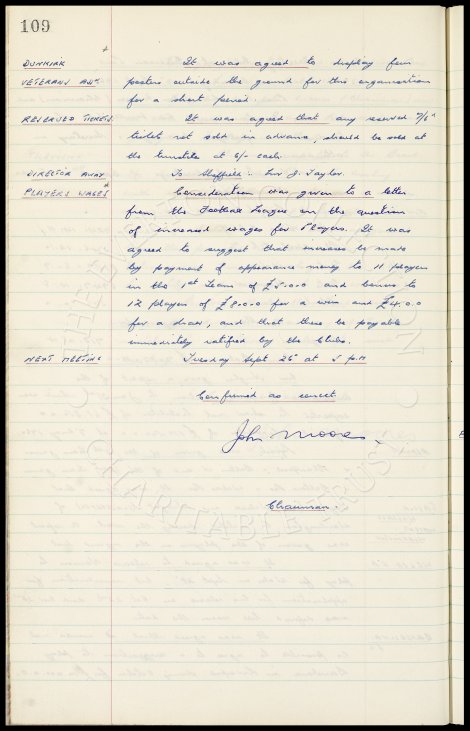 109
DUNKIRK It was agreed to display four
VETERANS ASSN posters outside the ground for this organisation
for a short period.
RESERVED TICKETS. It was agreed that any reserved 7/6d
ticket not sold in advance, should be sold at
the turnstile at 6/- cash.
DIRECTOR AWAY To Sheffield. Mr J. Taylor.
PLAYERS WAGES Consideration was given to a letter
from the Football League on the question
of increased wages for Players. It was
agreed to suggest that increases be made
by payment of appearance money to 11 players
in the 1st Team of £5.0.0 and bonus to
12 players of £8.0.0 for a win and £4.0.0
for a draw, and that these be payable
immediately ratified by the Clubs.
NEXT MEETING Tuesday Sept 26th at 5 p.m
Confirmed as correct
John Moores.
Chairman.
CHARITABLE TRUST